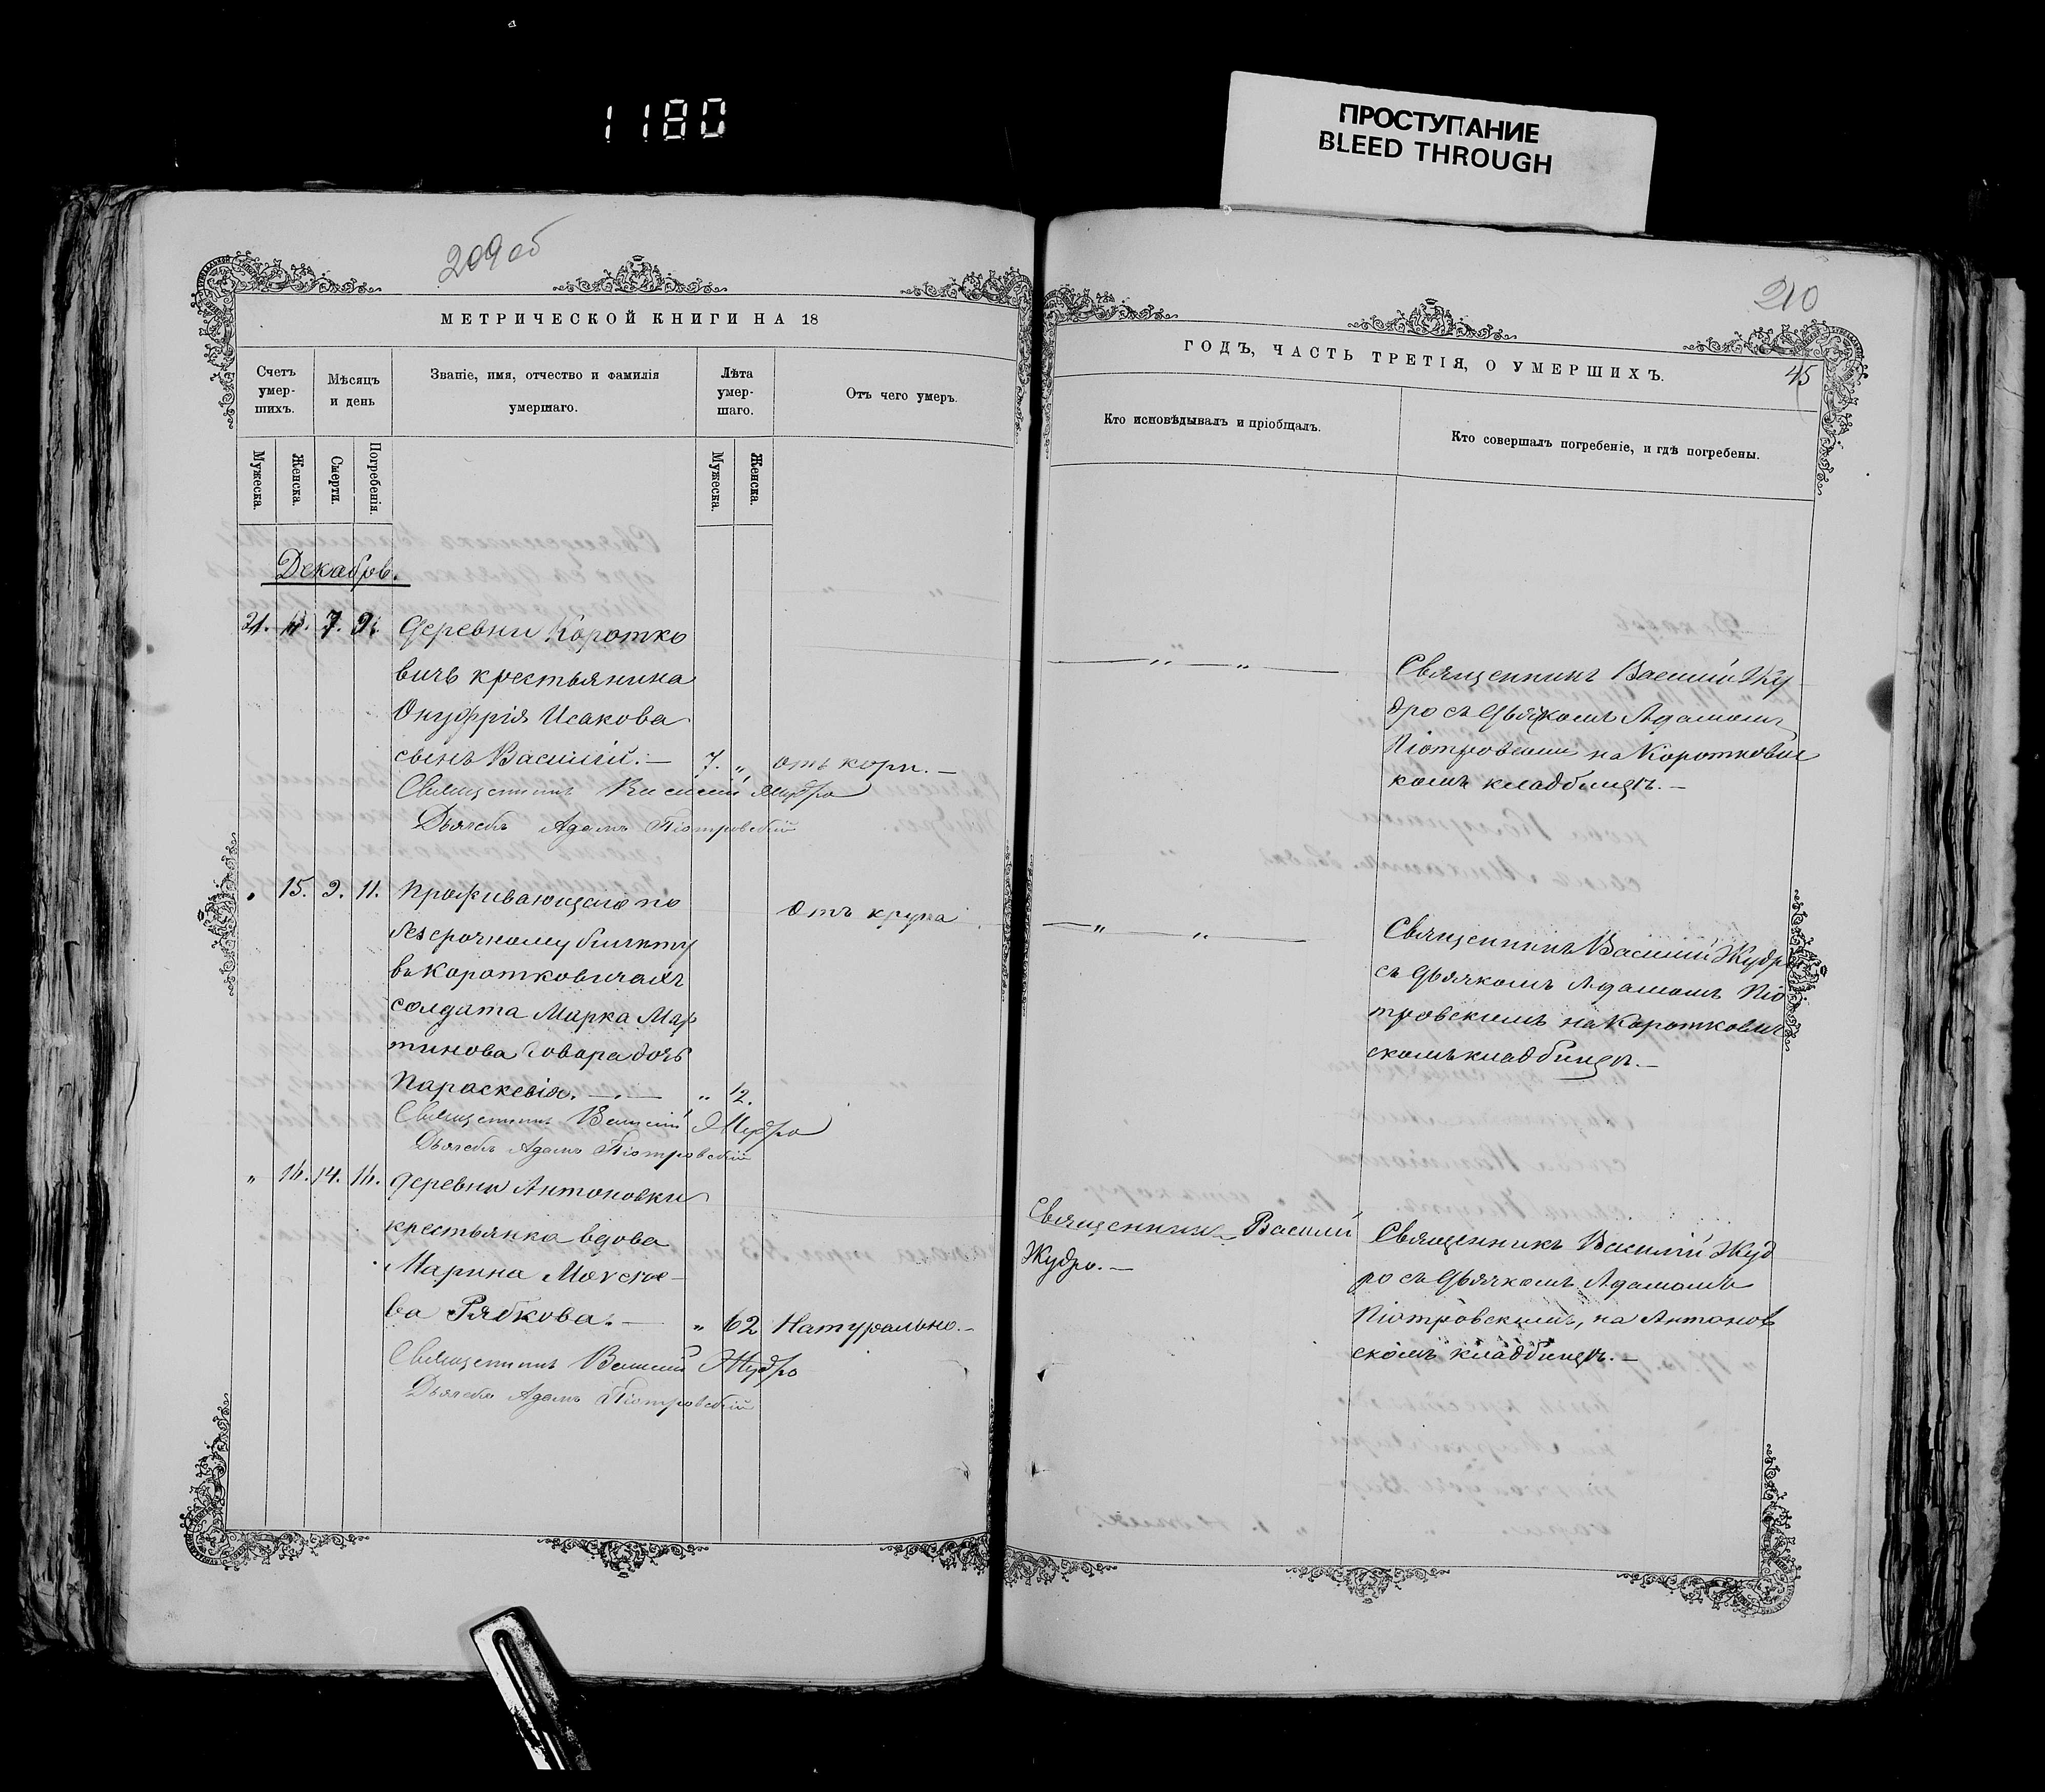 1180
ПРОСТУПАНИЕ
BLEED THROUGH
209 об
МЕТРИЧЕСКОЙ КНИГИ НА 18
Счетъ умер-шихъ.
Мѣсяцъ и день
Званіе, имя, отчество и фамилія умершаго.
Лѣта умер-шаго.
Отъ чего умеръ.
Мужеска.
Женска.
Смерти.
Погребенія.
Мужеска.
Женска.
Декабрь.
21. 7. 9. деревни Коротко
вичъ крестьянина
Онуфрія Исакова
сынъ Василій. — 7. „ отъ корп. —
Священникъ Василій Жудро
Дьячекъ Адамъ Піотровскій
„ 15. 9. 11. Проживающаго по
Отъ крупа
безсрочному билету
въ Коротковичахъ
солдата Марка Мар
тинова дочь
Параскевія. — „ 12.
Священникъ Василій Жудро
Дьячекъ Адамъ Піотровскій
„ 16. 14. 16. деревни Антоновки
крестьянка вдова
Марина
ва Рябкова. — „ 62 Натурально. —
Священникъ Василій Жудро
Дьячекъ Адамъ Піотровскій
210
ГОДЪ, ЧАСТЬ ТРЕТІЯ, О УМЕРШИХЪ.
45
Кто исповѣдывалъ и пріобщалъ.
Кто совершалъ погребеніе, и гдѣ погребены.
— „ — „ —
Священникъ Василій Жу
дро съ дьячкомъ Адамомъ
Піотровскимъ на Короткович
комъ кладбищѣ. —
— „ — „ —
Священникъ Василій Жудро
съ дьячкомъ Адамомъ Піо
тровскимъ на Короткович
скомъ кладбищѣ. —
Священникъ Василій
Жудро. —
Священникъ Василій Жуд
ро съ дьячкомъ Адамомъ
Піотровскимъ, на Антонов
скомъ кладбищѣ. —